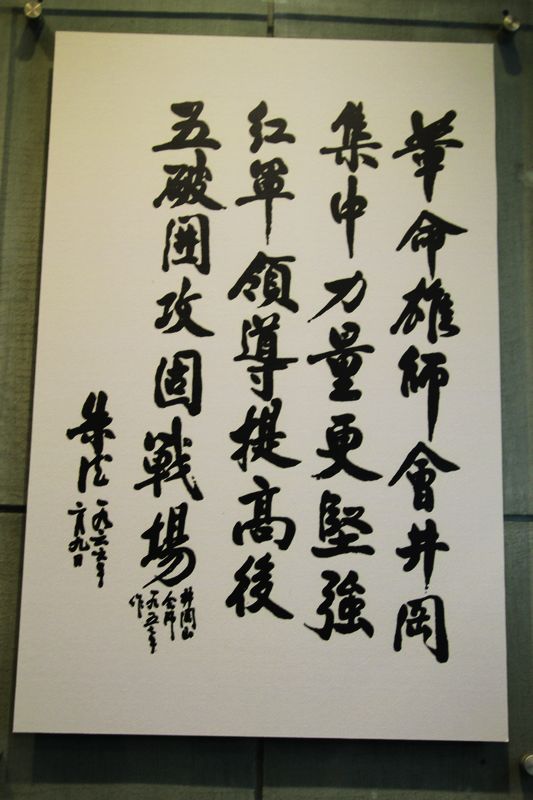 革命雄師會井岡
集中力量更堅強
红軍領導提高後
五破囲攻固戰場
井岡山
会师
一九五七年
作
朱德
一九六六年
月九日